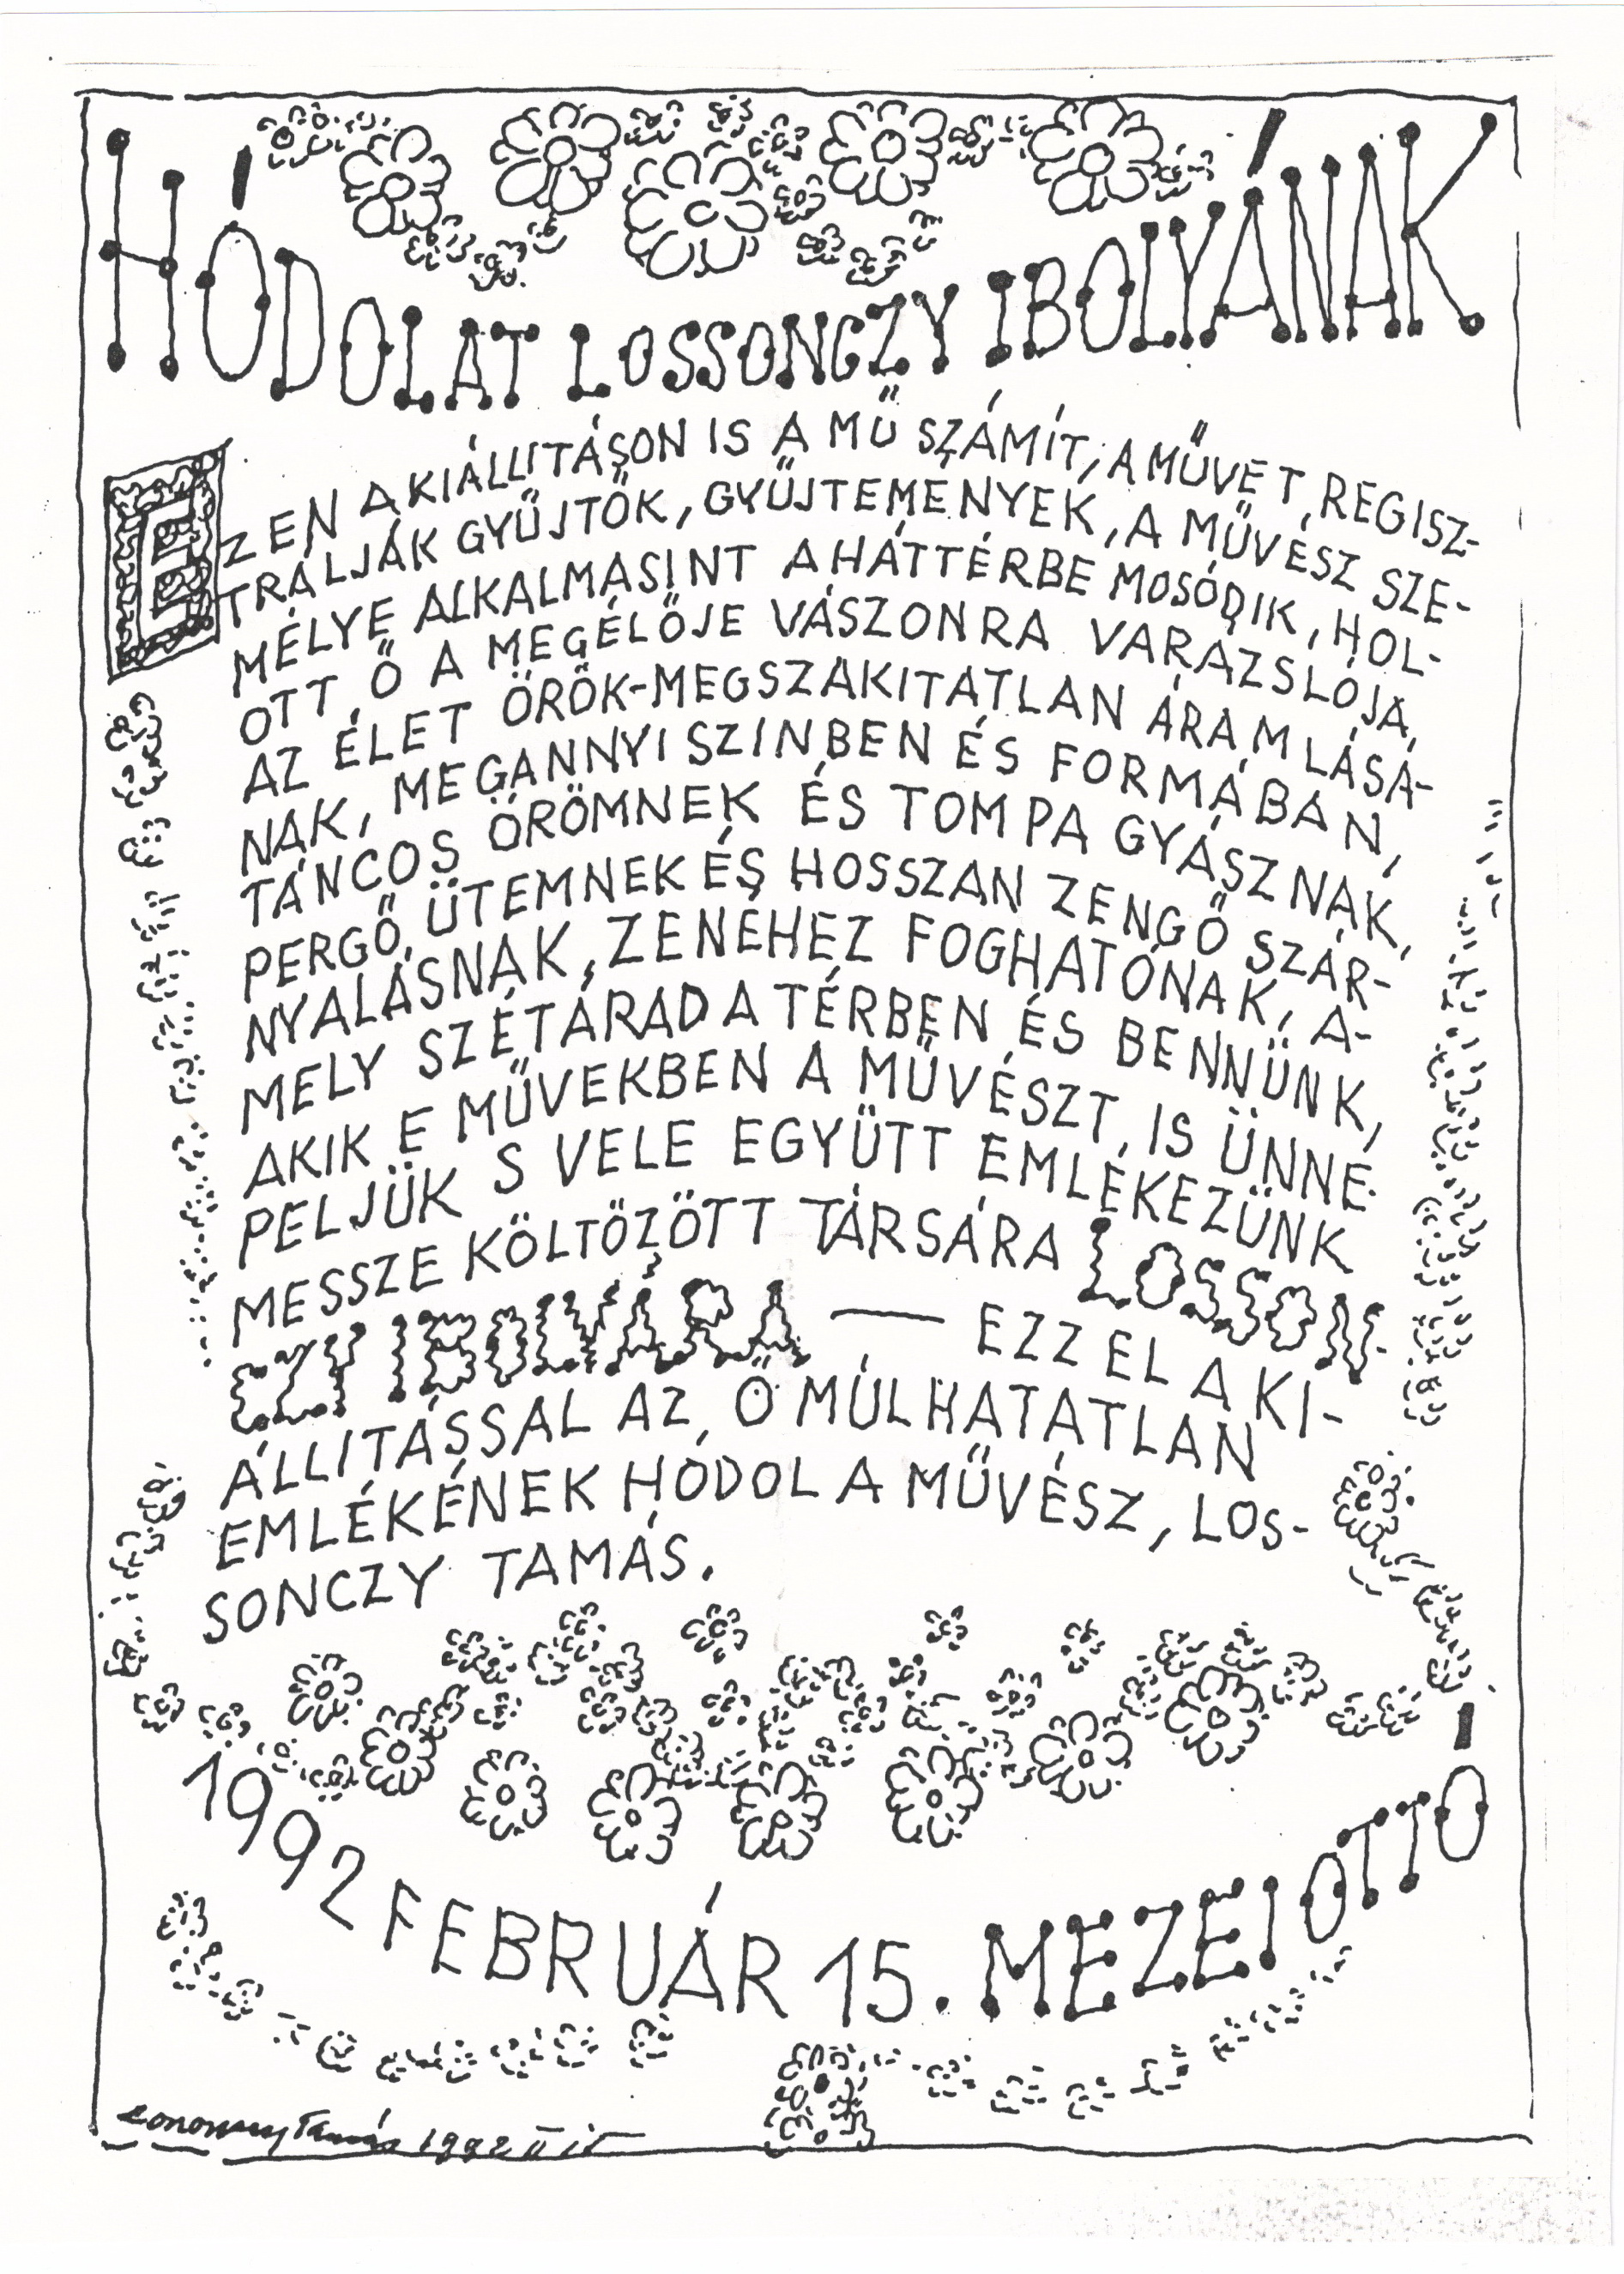 HÓDOLAT LOSSONCZY IBOLYÁNAK
EZEN A KIÁLLITÁSON IS A MŰ SZÁMÍT, A MŰVET REGISZ-
TRÁLJÁK GYŰJTŐK, GYŰJTEMÉNYEK, A MŰVÉSZ SZE-
MÉLYE ALKALMASINT A HÁTTÉRBE MOSÓDIK, HOL-
OTT Ő A MEGÉLŐJE VÁSZONRA VARÁZSLÓJA
AZ ÉLET ÖRÖK-MEGSZAKITATLAN ÁRAMLÁSÁ-
NAK, MEGANNYI SZINBEN ÉS FORMÁBAN,
TÁNCOS ÖRÖMNEK ÉS TOMPA GYÁSZNAK,
PERGŐ ÜTEMNEK ÉS HOSSZAN ZENGŐ SZÁR-
NYALÁSNAK, ZENÉHEZ FOGHATÓNAK, A-
MELY SZÉTÁRAD A TÉRBEN ÉS BENNÜNK,
AKIK E MŰVEKBEN A MŰVÉSZT IS ÜNNE-
PELJÜK S VELE EGYÜTT EMLÉKEZÜNK
MESSZE KÖLTÖZÖTT TÁRSÁRA LOSSON-
CZY IBOLYÁRA — EZZEL A KI-
ÁLLITÁSSAL AZ Ő MÚLHATATLAN
EMLÉKÉNEK HÓDOL A MŰVÉSZ, LOS-
SONCZY TAMÁS.
1992 FEBRUÁR 15. MEZEI OTTÓ
Lossonczy Tamás 1992 II 15